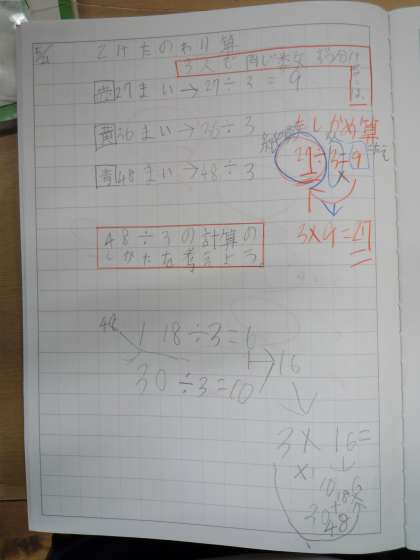 2けたのわり算
3人で同じ数ずつ分け
27まい→27÷3=9
黄36まい→36÷3
青48まい→48÷3
たしかめ算
27÷3=9
3×9=27
48÷3の計算の
しかたを考えよう。
48
18÷3=6
30÷3=10
16
3×16=
10 6
18
30
48